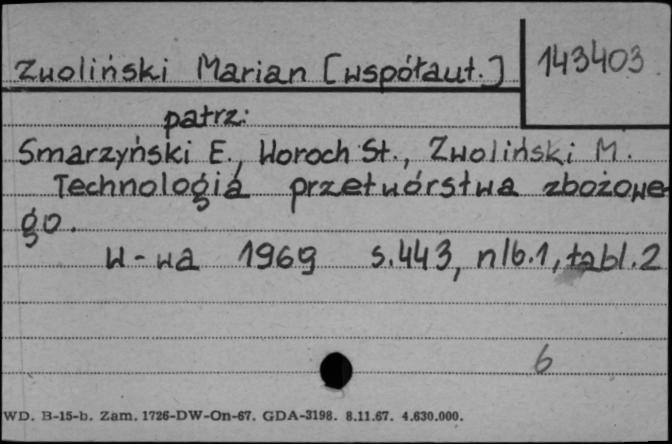 Zwoliński Marian [współaut.]
143403
patrz:
Smarzyński E., Woroch St., Zwoliński M.
Technologia przetwórstwa zbożowe-
go.
W-wa 1969 s.443, nlb.1, tabl.2
6
WD. B-15-b. Zam. 1726-DW-On-67. GDA-3198. 8.11.67. 4.630.000.